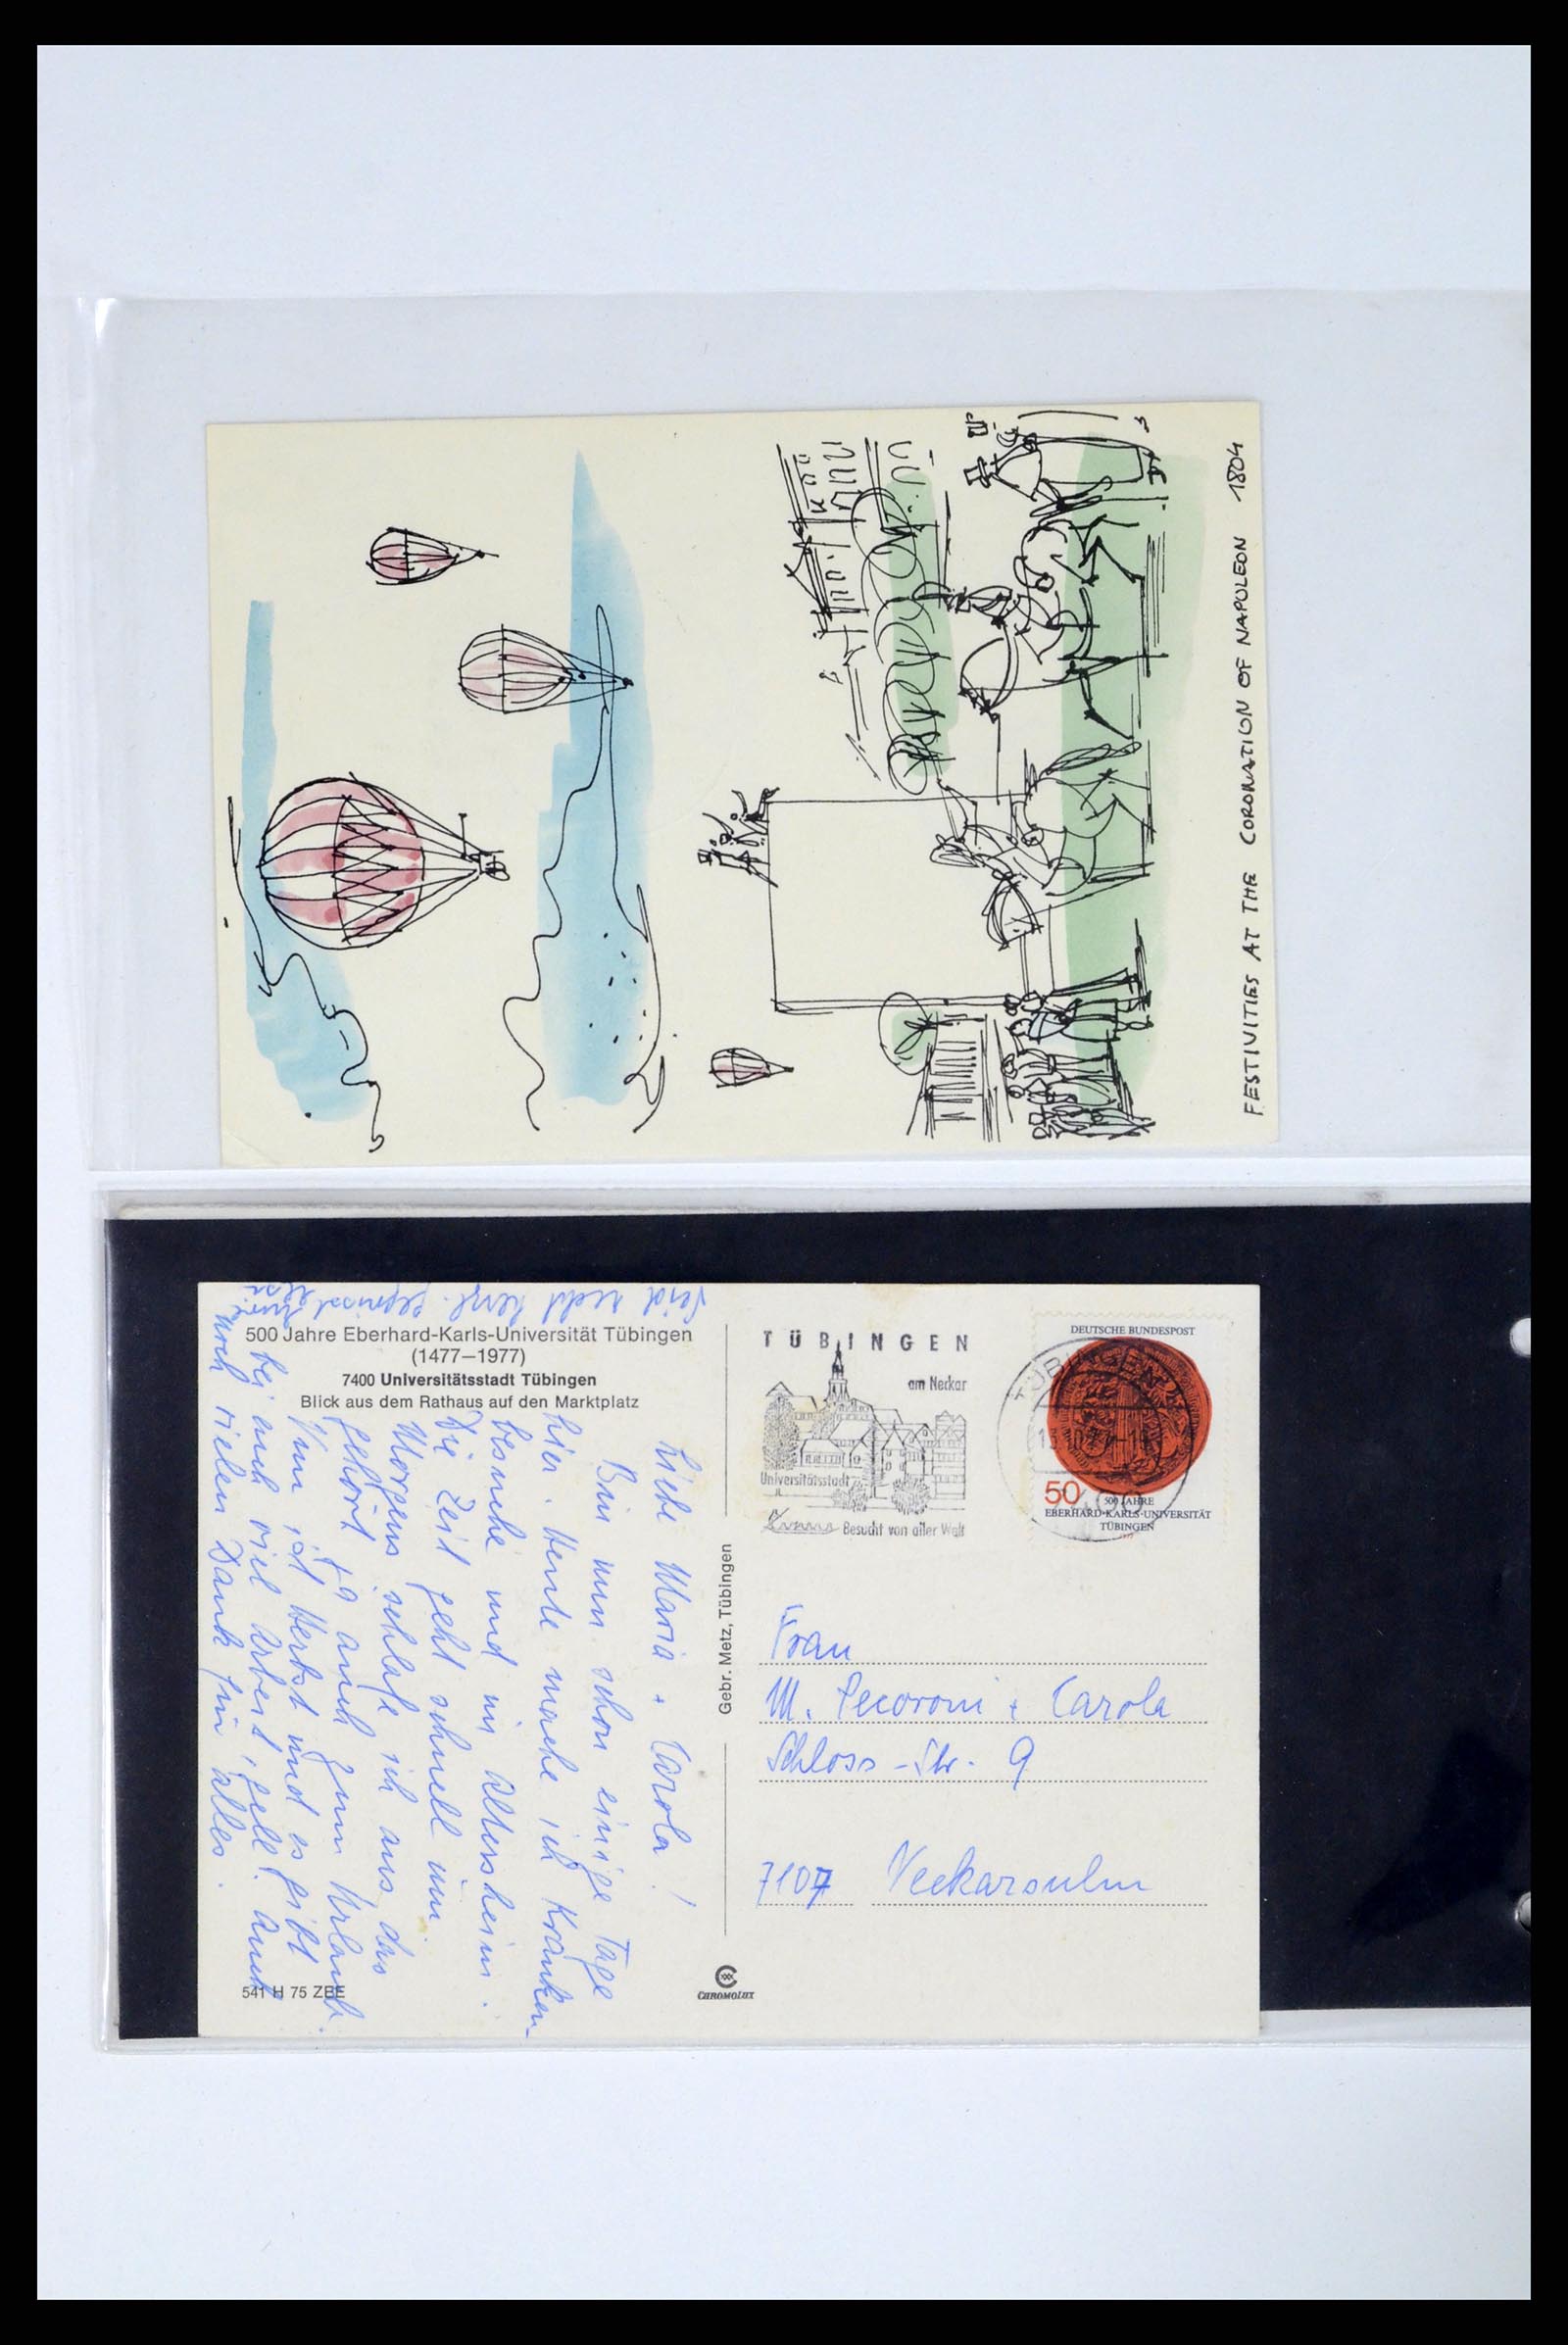 FESTIVITIES AT THE CORONATION OF NAPOLEON 1804
500 Jahre Eberhard-Karls-Universität Tübingen
(1477–1977)
7400 Universitätsstadt Tübingen
Blick aus dem Rathaus auf den Marktplatz
Liebe Maria + Carola!
Bin nun schon einige Tage
hier. Heute mache ich Kranken-
besuche und im Altersheim.
Die Zeit geht schnell um.
Morgens schlafe ich aus, das
gehört ja auch zum Urlaub.
Nun ist Herbst und es gibt
bei euch viel Arbeit, gell! Auch
noch vielen Dank für alles.
Seid recht herzl. gegrüsst
541 H 75 ZBE
Gebr. Metz, Tübingen
CHROMOLUX
TÜBINGEN
am Neckar
Universitätsstadt
Besucht von aller Welt
DEUTSCHE BUNDESPOST
TÜBINGEN
50
500 JAHRE
EBERHARD-KARLS-UNIVERSITÄT
TÜBINGEN
Frau
M. Pecoroni + Carola
Schloss-Str. 9
7107 Neckarsulm